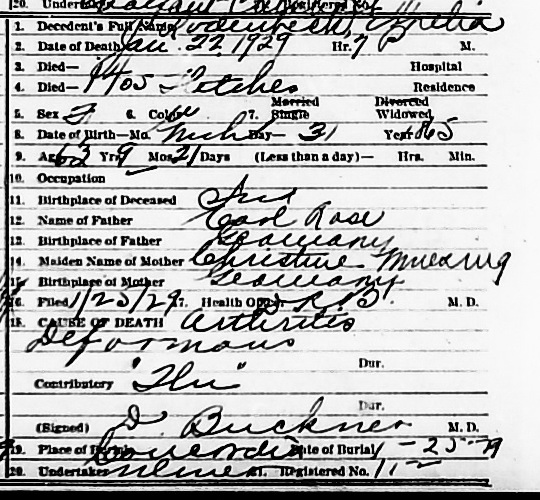 20. Undertaker Registered No.
1. Decedent's Full Name Rodenbeck, Amelia
2. Date of Death Jan. 22, 1929 Hr. 7 P M.
3. Died— Hospital
4. Died— 1405 Fletcher Residence
5. Sex F 6. Color W 7. Married Single Divorced Widowed
8. Date of Birth—Mo. Mch Day— 31 Year 1865
9. Age 63 Yrs. 9 Mos. 21 Days (Less than a day)— Hrs. Min.
10. Occupation
11. Birthplace of Deceased Ind
12. Name of Father Carl Rose
13. Birthplace of Father Germany
14. Maiden Name of Mother Christine
15. Birthplace of Mother Germany
16. Filed 1/25/29 17. Health Officer M. D.
18. CAUSE OF DEATH Arthritis
Deformans
Dur.
Contributory "Flu"
Dur.
(Signed) D. Buckner M. D.
19. Place of Burial Concordia Date of Burial 1-25-29
20. Undertaker 21. Registered No. 11